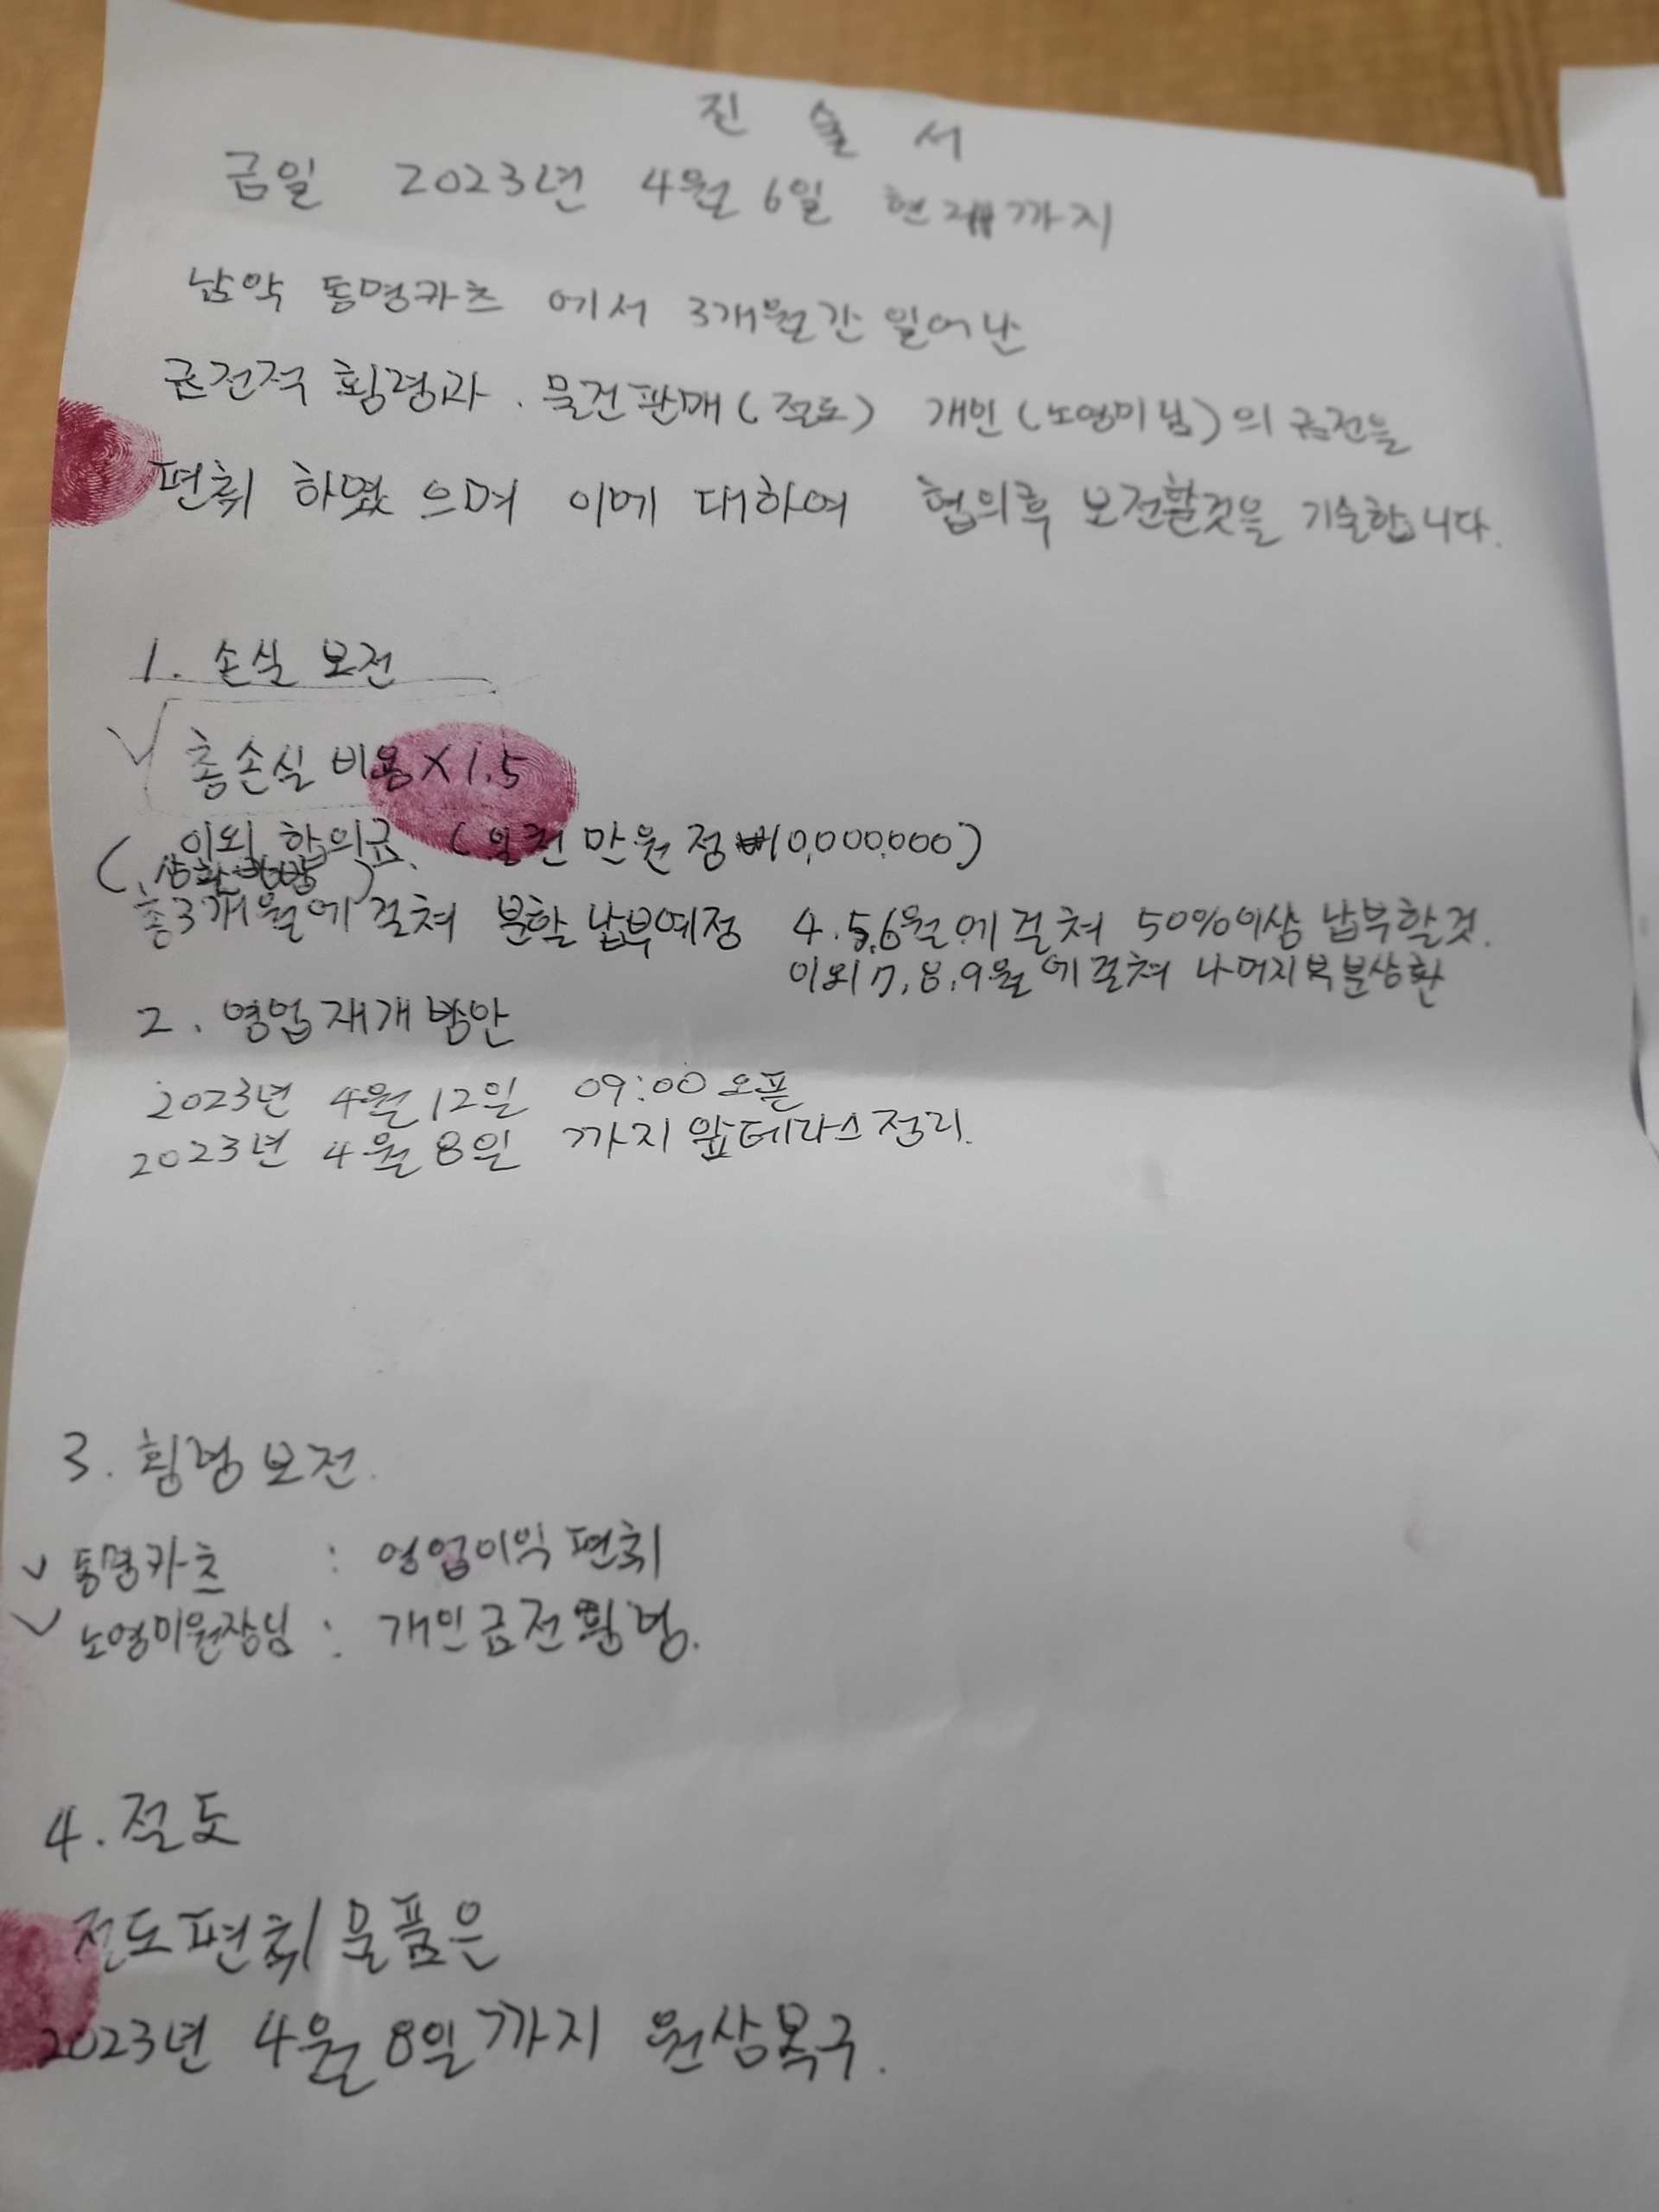 진 술 서
금일 2023년 4월 6일 현재까지
남악 통명카츠 에서 3개월간 일어난
금전적 횡령과. 물건판매(절도) 개인(노영미님)의 금전을
편취 하였 으며 이에 대하여 협의후 보전할것을 기술합니다.
1. 손실 보전
총손실 비용 X 1.5
이외 합의금. (일천만원정 ₩10,000,000)
(상환방법)
총3개월에 걸쳐 분할 납부예정 4.5.6월에 걸쳐 50%이상 납부할것.
이외 7,8,9월에 걸쳐 나머지 부분상환
2. 영업재개방안
2023년 4월 12일 09:00 오픈
2023년 4월 8일 까지 앞테라스정리.
3. 횡령보전.
통명카츠 : 영업이익 편취
노영미원장님 : 개인금전횡령.
4. 절도
절도편취 물품은
2023년 4월 8일까지 원상복구.